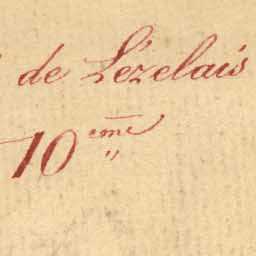 de Lézelais
10eme "